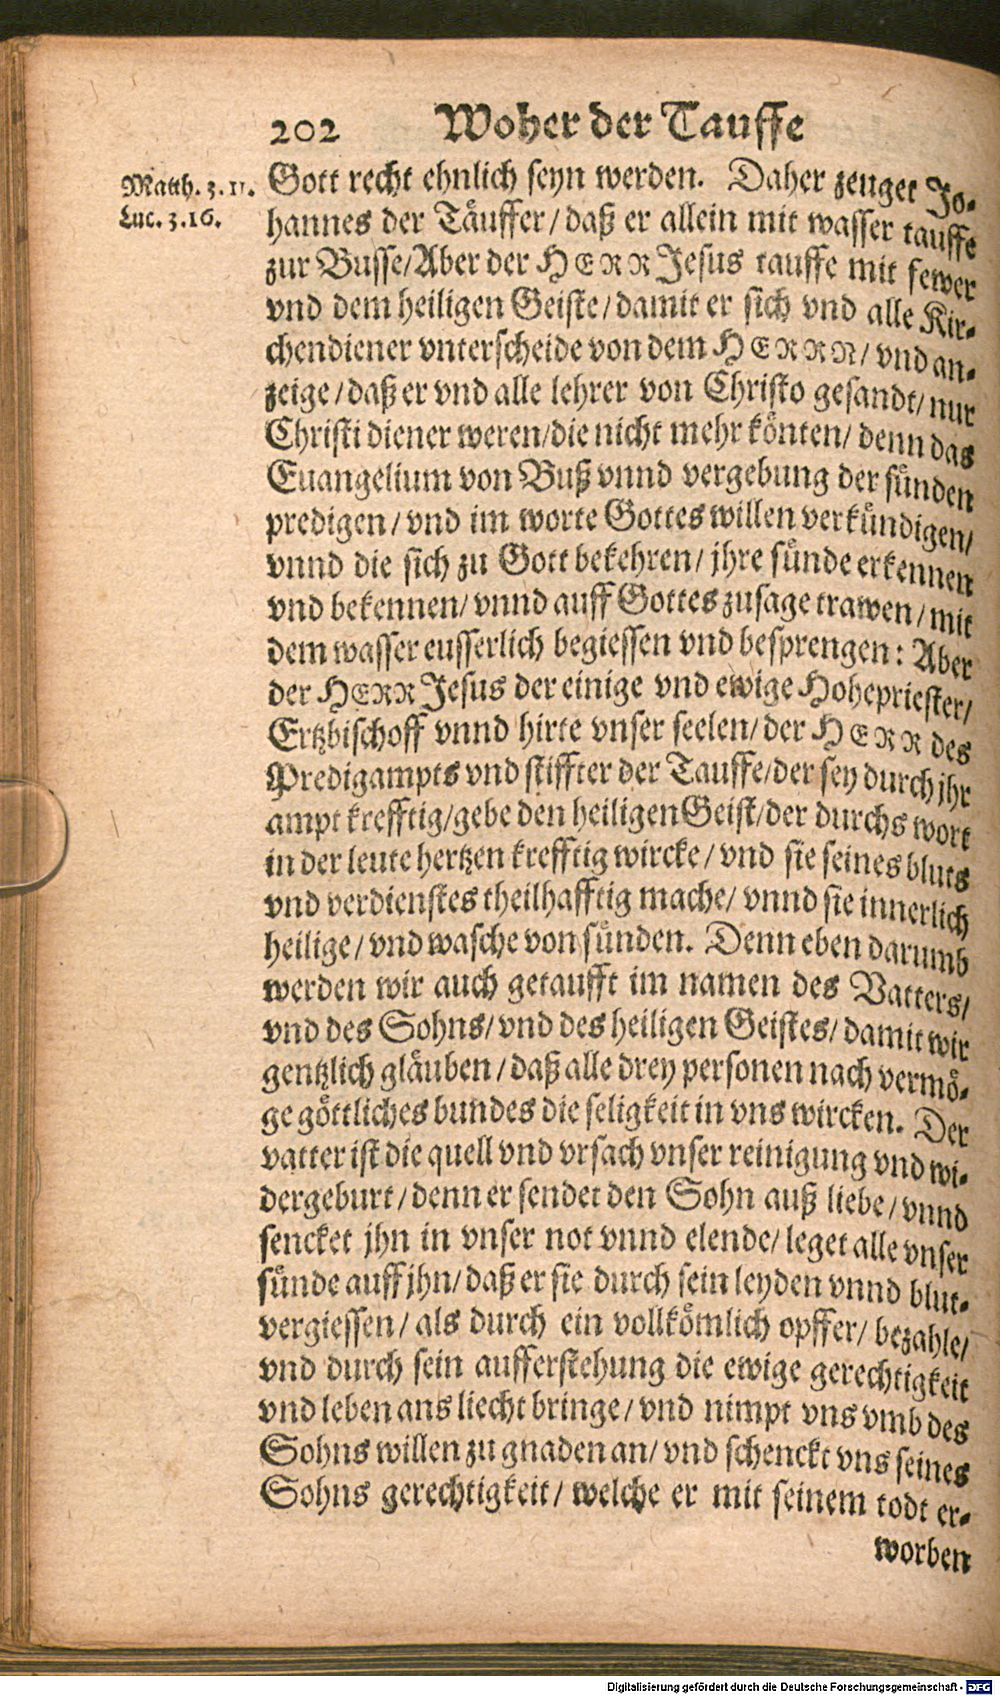 202 Woher der Tauffe
Matth. 3. 11.
Luc. 3. 16.
Gott recht ehnlich seyn werden. Daher zeuget Jo-
hannes der Täuffer / daß er allein mit wasser tauffe
zur Busse / Aber der HERR Jesus tauffe mit fewer
vnd dem heiligen Geiste / damit er sich vnd alle Kir-
chendiener vnterscheide von dem HERRN / vnd an-
zeige / daß er vnd alle lehrer von Christo gesandt / nur
Christi diener weren / die nicht mehr könten / denn das
Euangelium von Buß vnnd vergebung der sünden
predigen / vnd im worte Gottes willen verkündigen /
vnnd die sich zu Gott bekehren / jhre sünde erkennen
vnd bekennen / vnnd auff Gottes zusage trawen / mit
dem wasser eusserlich begiessen vnd besprengen : Aber
der HERR Jesus der einige vnd ewige Hohepriester /
Ertzbischoff vnnd hirte vnser seelen / der HERR des
Predigampts vnd stiffter der Tauffe / der sey durch jhr
ampt krefftig / gebe den heiligen Geist / der durchs wort
in der leute hertzen krefftig wircke / vnd sie seines bluts
vnd verdienstes theilhafftig mache / vnnd sie innerlich
heilige / vnd wasche von sünden. Denn eben darumb
werden wir auch getaufft im namen des Vatters /
vnd des Sohns / vnd des heiligen Geistes / damit wir
gentzlich gläuben / daß alle drey personen nach vermö-
ge göttliches bundes die seligkeit in vns wircken. Der
vatter ist die quell vnd vrsach vnser reinigung vnd wi-
dergeburt / denn er sendet den Sohn auß liebe / vnnd
sencket jhn in vnser not vnnd elende / leget alle vnser
sünde auff jhn / daß er sie durch sein leyden vnnd blut-
vergiessen / als durch ein vollkömlich opffer / bezahle /
vnd durch sein aufferstehung die ewige gerechtigkeit
vnd leben ans liecht bringe / vnd nimpt vns vmb des
Sohns willen zu gnaden an / vnd schenckt vns seines
Sohns gerechtigkeit / welche er mit seinem todt er-
worben
Digitalisierung gefördert durch die Deutsche Forschungsgemeinschaft - DFG